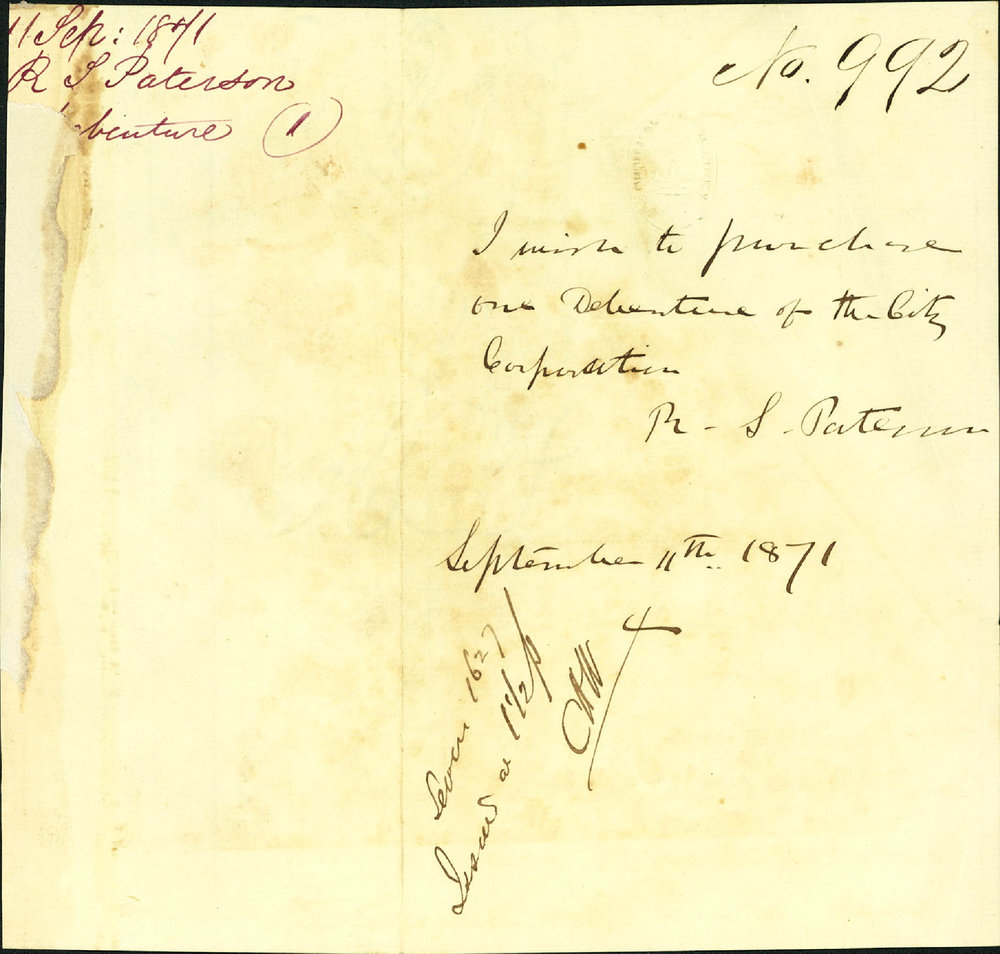 11 Sep: 1871
R S Paterson
benture (1)
No. 992
I wish to purchase
one Debenture of the City
Corporation
R - S - Paterson
September 11th. 1871
1627
Issued at 1 1/2 p